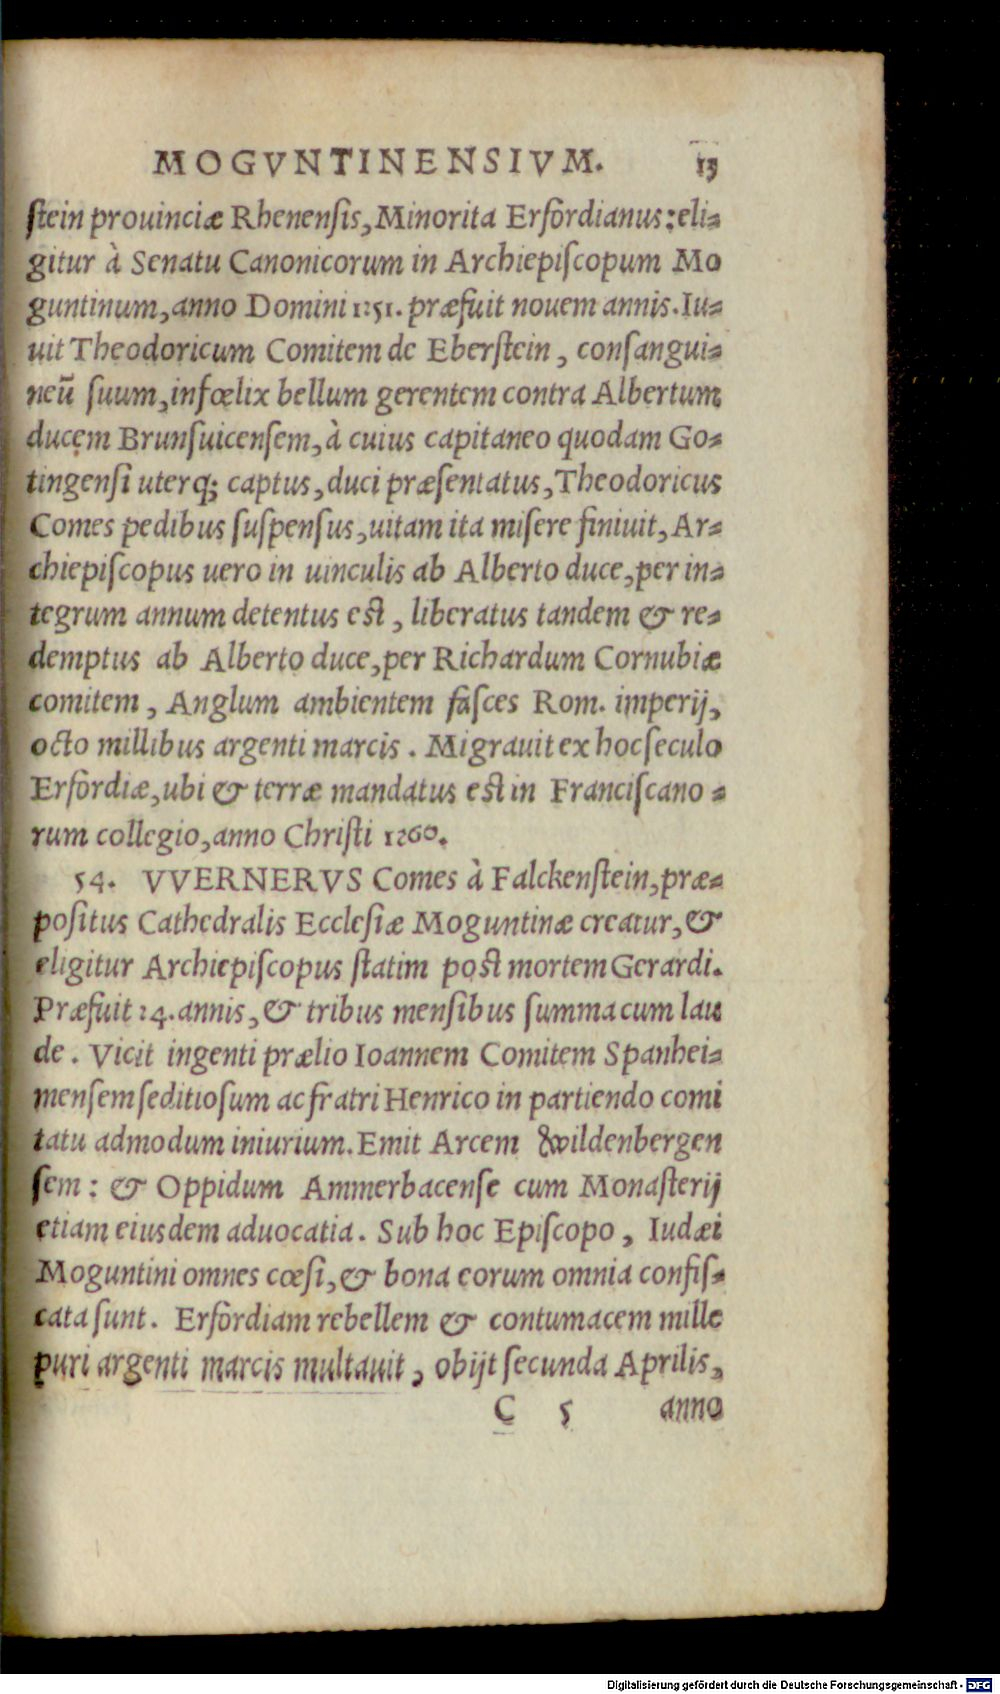 MOGVNTINENSIVM. 13
ſtein prouinciæ Rhenenſis, Minorita Erfordianus: eli⸗
gitur à Senatu Canonicorum in Archiepiſcopum Mo
guntinum, anno Domini 1251. præfuit nouem annis. Iu⸗
uit Theodoricum Comitem de Eberſtein, conſangui⸗
neū ſuum, infœlix bellum gerentem contra Albertum
ducem Brunſuicenſem, à cuius capitaneo quodam Go⸗
tingenſi uterq; captus, duci præſentatus, Theodoricus
Comes pedibus ſuſpenſus, uitam ita miſere finiuit, Ar⸗
chiepiſcopus uero in uinculis ab Alberto duce, per in⸗
tegrum annum detentus eſt, liberatus tandem & re⸗
demptus ab Alberto duce, per Richardum Cornubiæ
comitem, Anglum ambientem faſces Rom. imperij,
octo millibus argenti marcis. Migrauit ex hoc ſeculo
Erfordiæ, ubi & terræ mandatus eſt in Franciſcano⸗
rum collegio, anno Chriſti 1260.
54. VVERNERVS Comes à Falckenſtein, præ⸗
poſitus Cathedralis Eccleſiæ Moguntinæ creatur, &
eligitur Archiepiſcopus ſtatim poſt mortem Gerardi.
Præfuit 24. annis, & tribus menſibus ſumma cum lau
de. Vicit ingenti prælio Ioannem Comitem Spanhei⸗
menſem ſeditioſum ac fratri Henrico in partiendo comi
tatu admodum iniurium. Emit Arcem Wildenbergen
ſem: & Oppidum Ammerbacenſe cum Monaſterij
etiam eiusdem aduocatia. Sub hoc Epiſcopo, Iudæi
Moguntini omnes cœſi, & bona eorum omnia confiſ⸗
cata ſunt. Erfordiam rebellem & contumacem mille
puri argenti marcis multauit, obijt ſecunda Aprilis,
C 5 anno
Digitalisierung gefördert durch die Deutsche Forschungsgemeinschaft - DFG